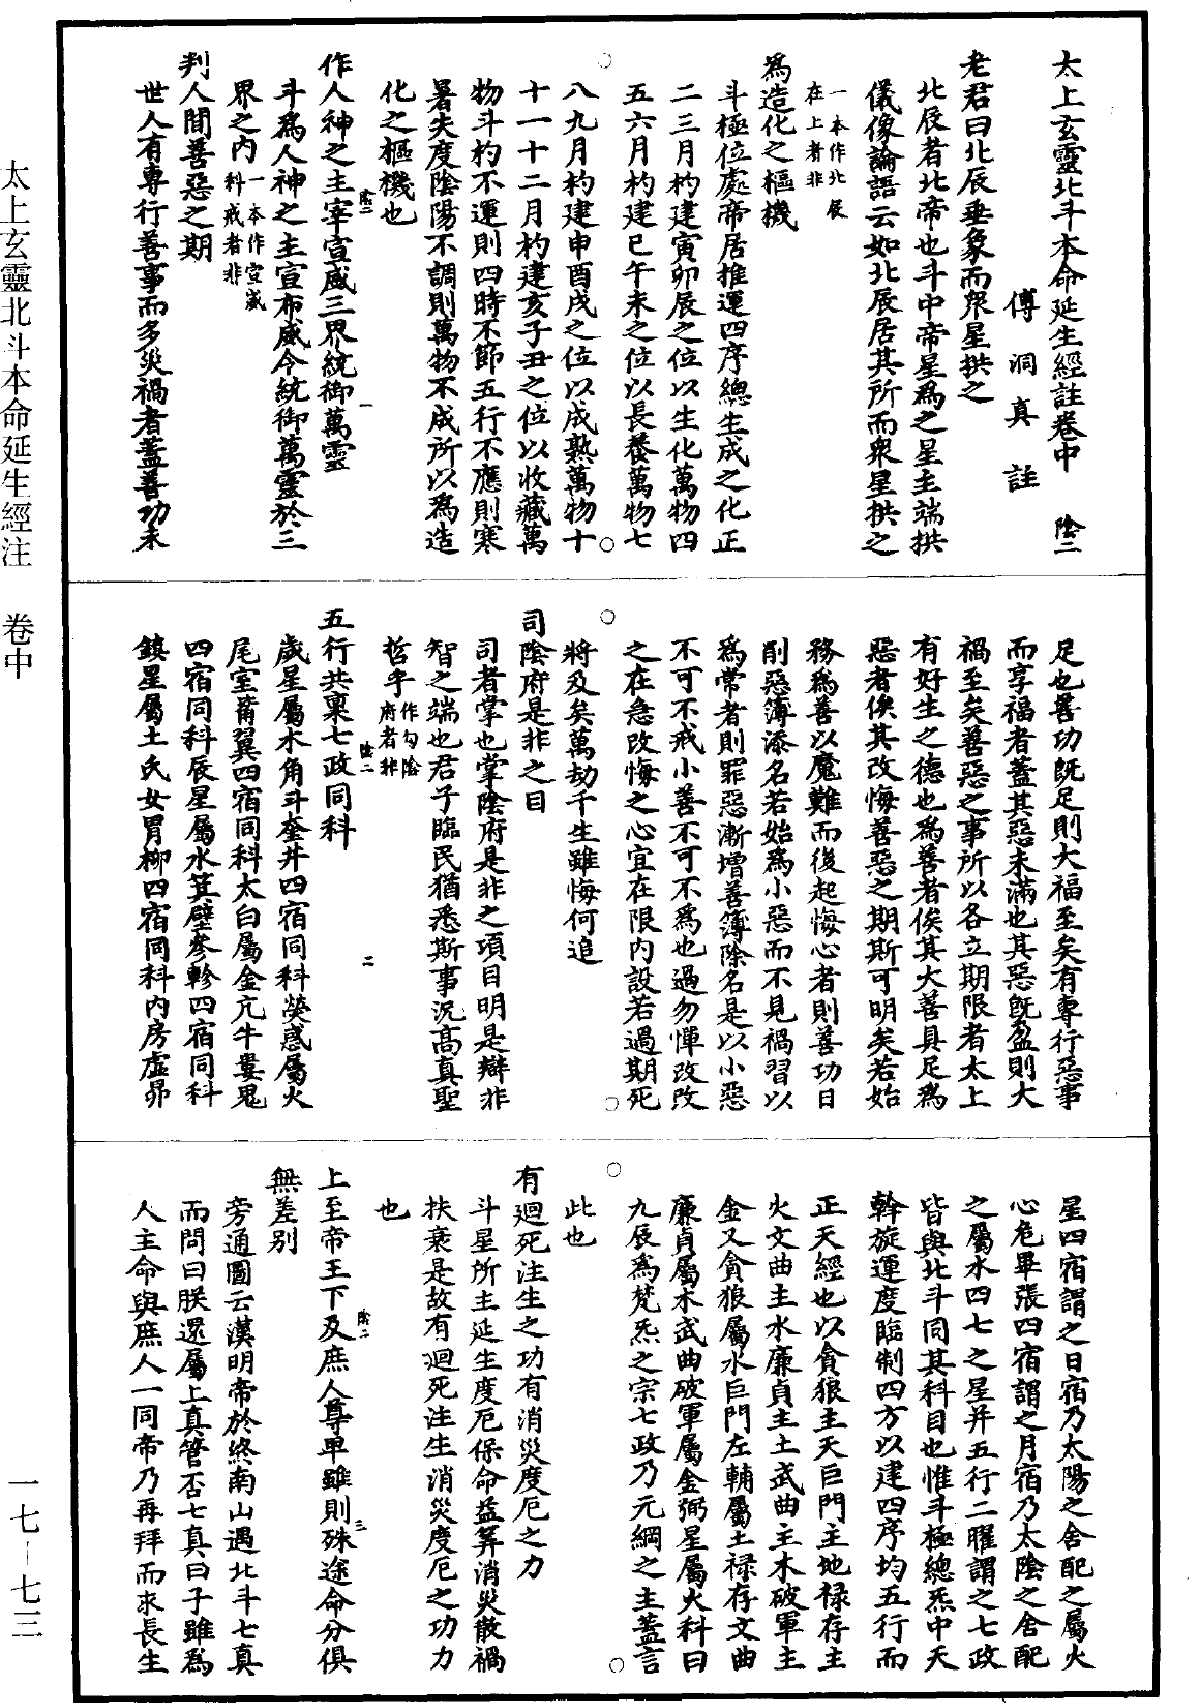 太上玄靈北斗本命延生經註卷中　陰二
傅洞真註
老君曰北辰垂象而衆星拱之
北辰者北帝也斗中帝星為之星主端拱
儀像論語云如北辰居其所而衆星拱之
一本作北辰
在上者非
為造化之樞機
斗極位處帝居推運四序總生成之化正
二三月杓建寅卯辰之位以生化萬物四
五六月杓建巳午未之位以長養萬物七
八九月杓建申酉戌之位以成熟萬物十
十一十二月杓建亥子丑之位以收藏萬
物斗杓不運則四時不節五行不應則寒
暑失度陰陽不調則萬物不成所以為造
化之樞機也
陰二　一
作人神之主宰宣威三界統御萬靈
斗為人神之主宣布威令統御萬靈於三
界之內一本作宣威
科戒者非
判人間善惡之期
世人有專行善事而多災禍者蓋善功未
足也善功既足則大福至矣有專行惡事
而享福者蓋其惡未滿也其惡既盈則大
禍至矣善惡之事所以各立期限者太上
有好生之德也為善者俟其大善具足為
惡者俟其改悔善惡之期斯可明矣若始
務為善以魔難而後起悔心者則善功日
削惡簿添名若始為小惡而不見禍習以
為常者則罪惡漸增善簿除名是以小惡
不可不戒小善不可不為也過勿憚改改
之在急改悔之心宜在限內設若過期死
將及矣萬劫千生雖悔何追
司陰府是非之目
司者掌也掌陰府是非之項目明是辯非
智之端也君子臨民猶悉斯事況高真聖
哲乎作勾陰
府者非
陰二　二
五行共稟七政同科
歲星屬木角斗奎井四宿同科熒惑屬火
尾室觜翼四宿同科太白屬金亢牛婁鬼
四宿同科辰星屬水箕壁參軫四宿同科
鎮星屬土氐女胃柳四宿同科內房虛昴
星四宿謂之日宿乃太陽之舍配之屬火
心危畢張四宿謂之月宿乃太陰之舍配
之屬水四七之星并五行二曜謂之七政
皆與北斗同其科目也惟斗極總炁中天
斡旋運度臨制四方以建四序均五行而
正天經也以貪狼主天巨門主地祿存主
火文曲主水廉貞主土武曲主木破軍主
金又貪狼屬水巨門左輔屬土祿存文曲
廉貞屬木武曲破軍屬金弼星屬火科曰
九辰為梵炁之宗七政乃元綱之主蓋言
此也
有迴死注生之功有消災度厄之力
斗星所主延生度厄保命益筭消災散禍
扶衰是故有迴死注生消災度厄之功力
也
陰二　三
上至帝王下及庶人尊卑雖則殊途命分俱
無差別
旁通圖云漢明帝於終南山遇北斗七真
而問曰朕還屬上真管否七真曰子雖為
人主命與庶人一同帝乃再拜而求長生
太上玄靈北斗本命延生經注　卷中
一七—七三